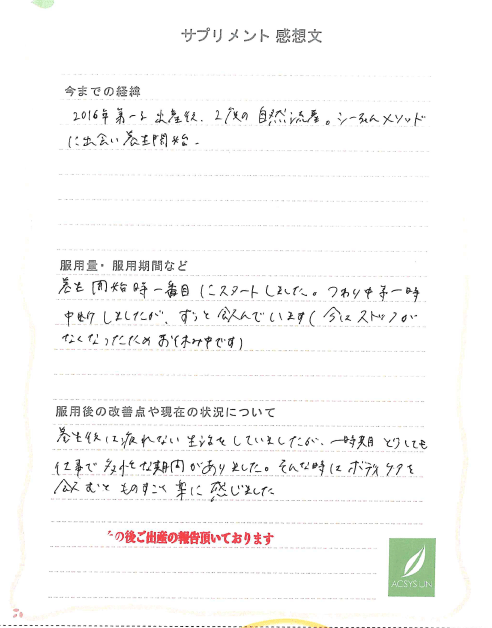 サプリメント 感想文
今までの経緯
2016年第一子出産後、2度の自然流産。シーちゃんメソッド
に出会い養生開始。
服用量・服用期間など
養生開始時一番目にスタートしました。つわり中一時
中断しましたが、ずっと飲んでいます(今はストックが
なくなったためお休み中です)
服用後の改善点や現在の状況について
養生後は疲れない生活をしていましたが、一時期どうしても
仕事で多忙な期間がありました。そんな時にボディケアを
飲むとものすごく楽に感じました
の後ご出産の報告頂いております
ACSYS JIN